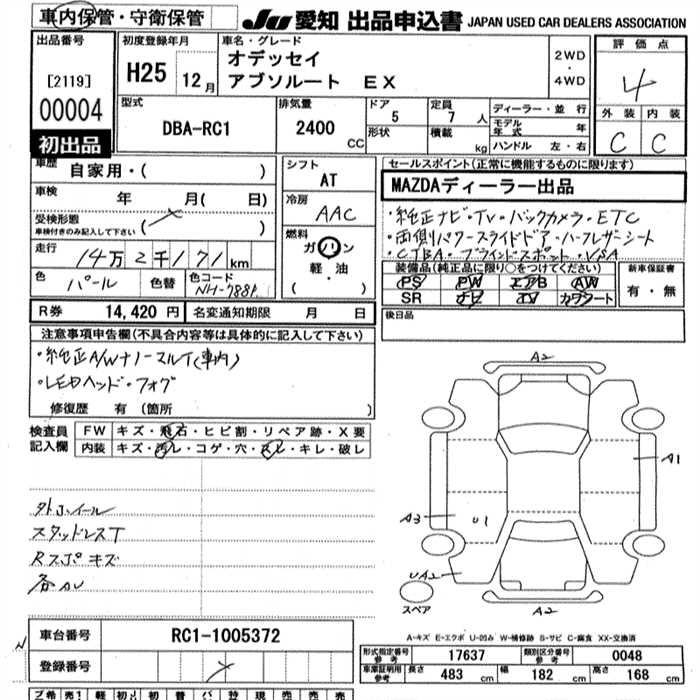 車内保管・守衛保管
JU 愛知 出品申込書 JAPAN USED CAR DEALERS ASSOCIATION
出品番号
[2119]
00004
初出品
初度登録年月
H25 12月
車名・グレード
オデッセイ
アブソルート EX
2WD
・
4WD
評価点
4
外装 内装
C C
型式
DBA-RC1
排気量
2400 CC
ドア
5
形状
定員
7 人
積載 kg
ディーラー・並行
モデル年式 年
ハンドル 左・右
車歴
自家用・( )
車検
年 月( 日)
受検形態
車検付きのみ記入して下さい ( )
走行
14万2千171km
色
パール
色替
色コード
NH-788P
シフト
AT
冷房
AAC
燃料
ガソリン
軽・油
( ・ )
セールスポイント(正常に機能するものに限ります)
MAZDAディーラー出品
・純正ナビ・TV・バックカメラ・ETC
・両側パワースライドドア・ハーフレザーシート
・CTBA・ブラインドスポット・VSA
装備品(純正品に限り○をつけてください)
PS PW エアB AW
SR ナビ TV カワシート
新車保証書
有・無
R券 14,420 円
名変通知期限 月 日
後日品
注意事項申告欄(不具合内容等は具体的に記入して下さい)
・純正A/W+ノーマルT(車内)
・LEDヘッド・フォグ
修復歴 有 (箇所 )
検査員記入欄
FW キズ・飛石・ヒビ割・リペア跡・X要
内装 キズ・汚レ・コゲ・穴・スレ・キレ・破レ
外ホイール
スタッドレスT
Rスポキズ
各AU
A2
A1
A3
U1
UA2
スペア
A2
A-キズ E-エクボ U-凹み W-補修跡 S-サビ C-腐食 XX-交換済
車台番号 RC1-1005372
登録番号
型式指定番号 参考 17637
類別区分番号 参考 0048
車庫証明用 参考 長さ 483 cm 幅 182 cm 高さ 168 cm